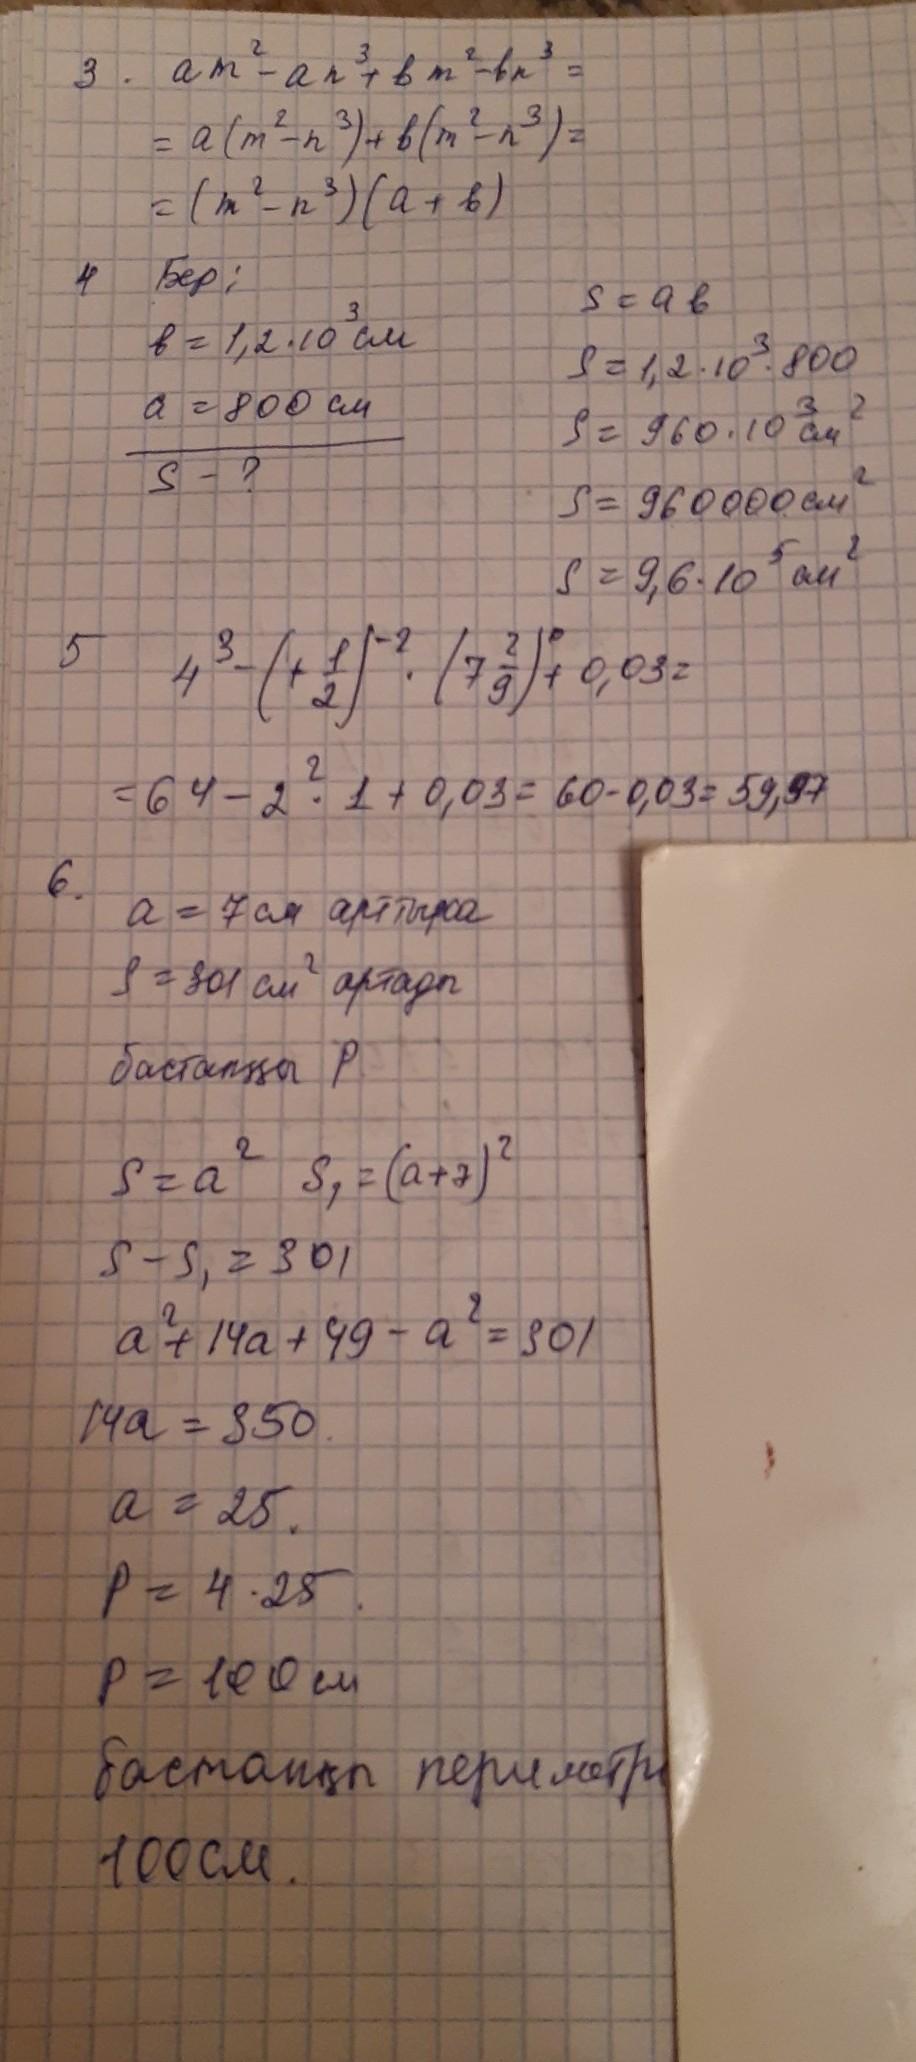 3. am² - an³ + bm² - bn³ =
= a(m² - n³) + b(m² - n³) =
= (m² - n³)(a + b)
4 Бер:
b = 1,2 · 10³ см
a = 800 см
S - ?
S = ab
S = 1,2 · 10³ · 800
S = 960 · 10³ см²
S = 960000 см²
S = 9,6 · 10⁵ см²
5 4³ - (+ 1/2)⁻² · (7 2/9)⁰ + 0,03 =
= 64 - 2² · 1 + 0,03 = 60 - 0,03 = 59,97
6.
a = 7 см арттырса
S = 301 см² артады
бастапқы P
S = a² S₁ = (a+7)²
S - S₁ = 301
a² + 14a + 49 - a² = 301
14a = 350.
a = 25.
P = 4 · 25.
P = 100 см
бастапқы периметрі
100 см.